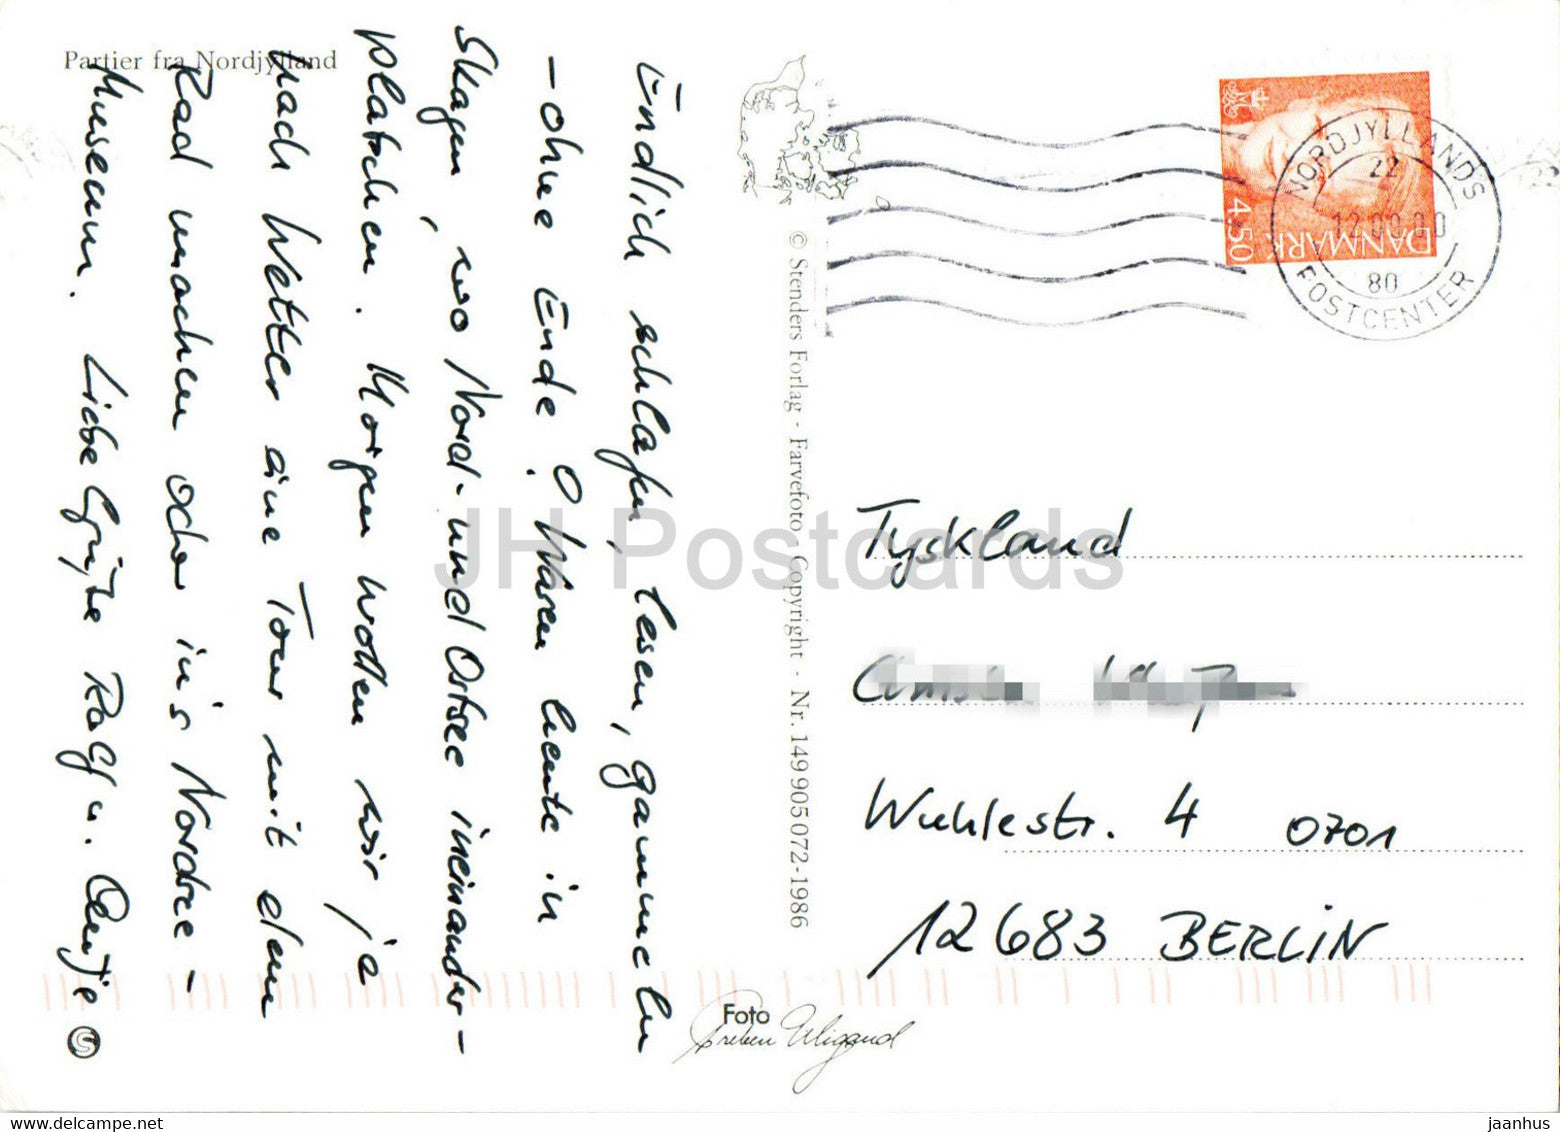 Partier fra Nordjylland
Endlich schlafen, lesen, gammeln
- ohne Ende! Waren heute in
Skagen, wo Nord- und Ostsee ineinander-
platschen. Morgen wollen wir je
nach Wetter eine Tour mit dem
Rad machen oder in's Nordsee-
Museum. Liebe Grüße Ralf u. Antje
© Stenders Forlag - Farvefoto. Copyright - Nr. 149 905 072-1986
4.50
DANMARK
NORDJYLLANDS
22
80
POSTCENTER
Tyskland
Wuhlestr. 4 0701
12683 BERLIN
Foto
Preben Wigand
JH Postcards
jaanhus / www.delcampe.net